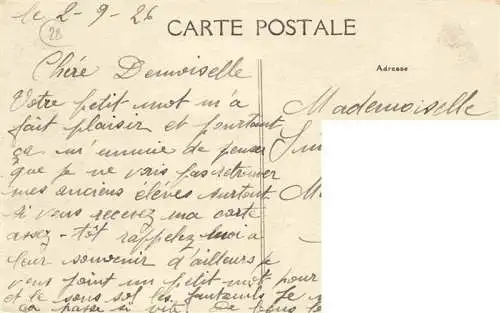 le 2-9-26
28
CARTE POSTALE
Adresse
Chère Demoiselle
Votre petit mot m'a
fait plaisir et pourtant
ça m'ennuie de penser
que je ne vais pas retrouver
mes anciens élèves surtout
si vous recevez ma carte
assez-tôt rappelez moi a
leur souvenir d'ailleurs je
veux joint un petit mot pour
et le sous sol les fauteuils Je
ça passe si vite! De tous
Mademoiselle